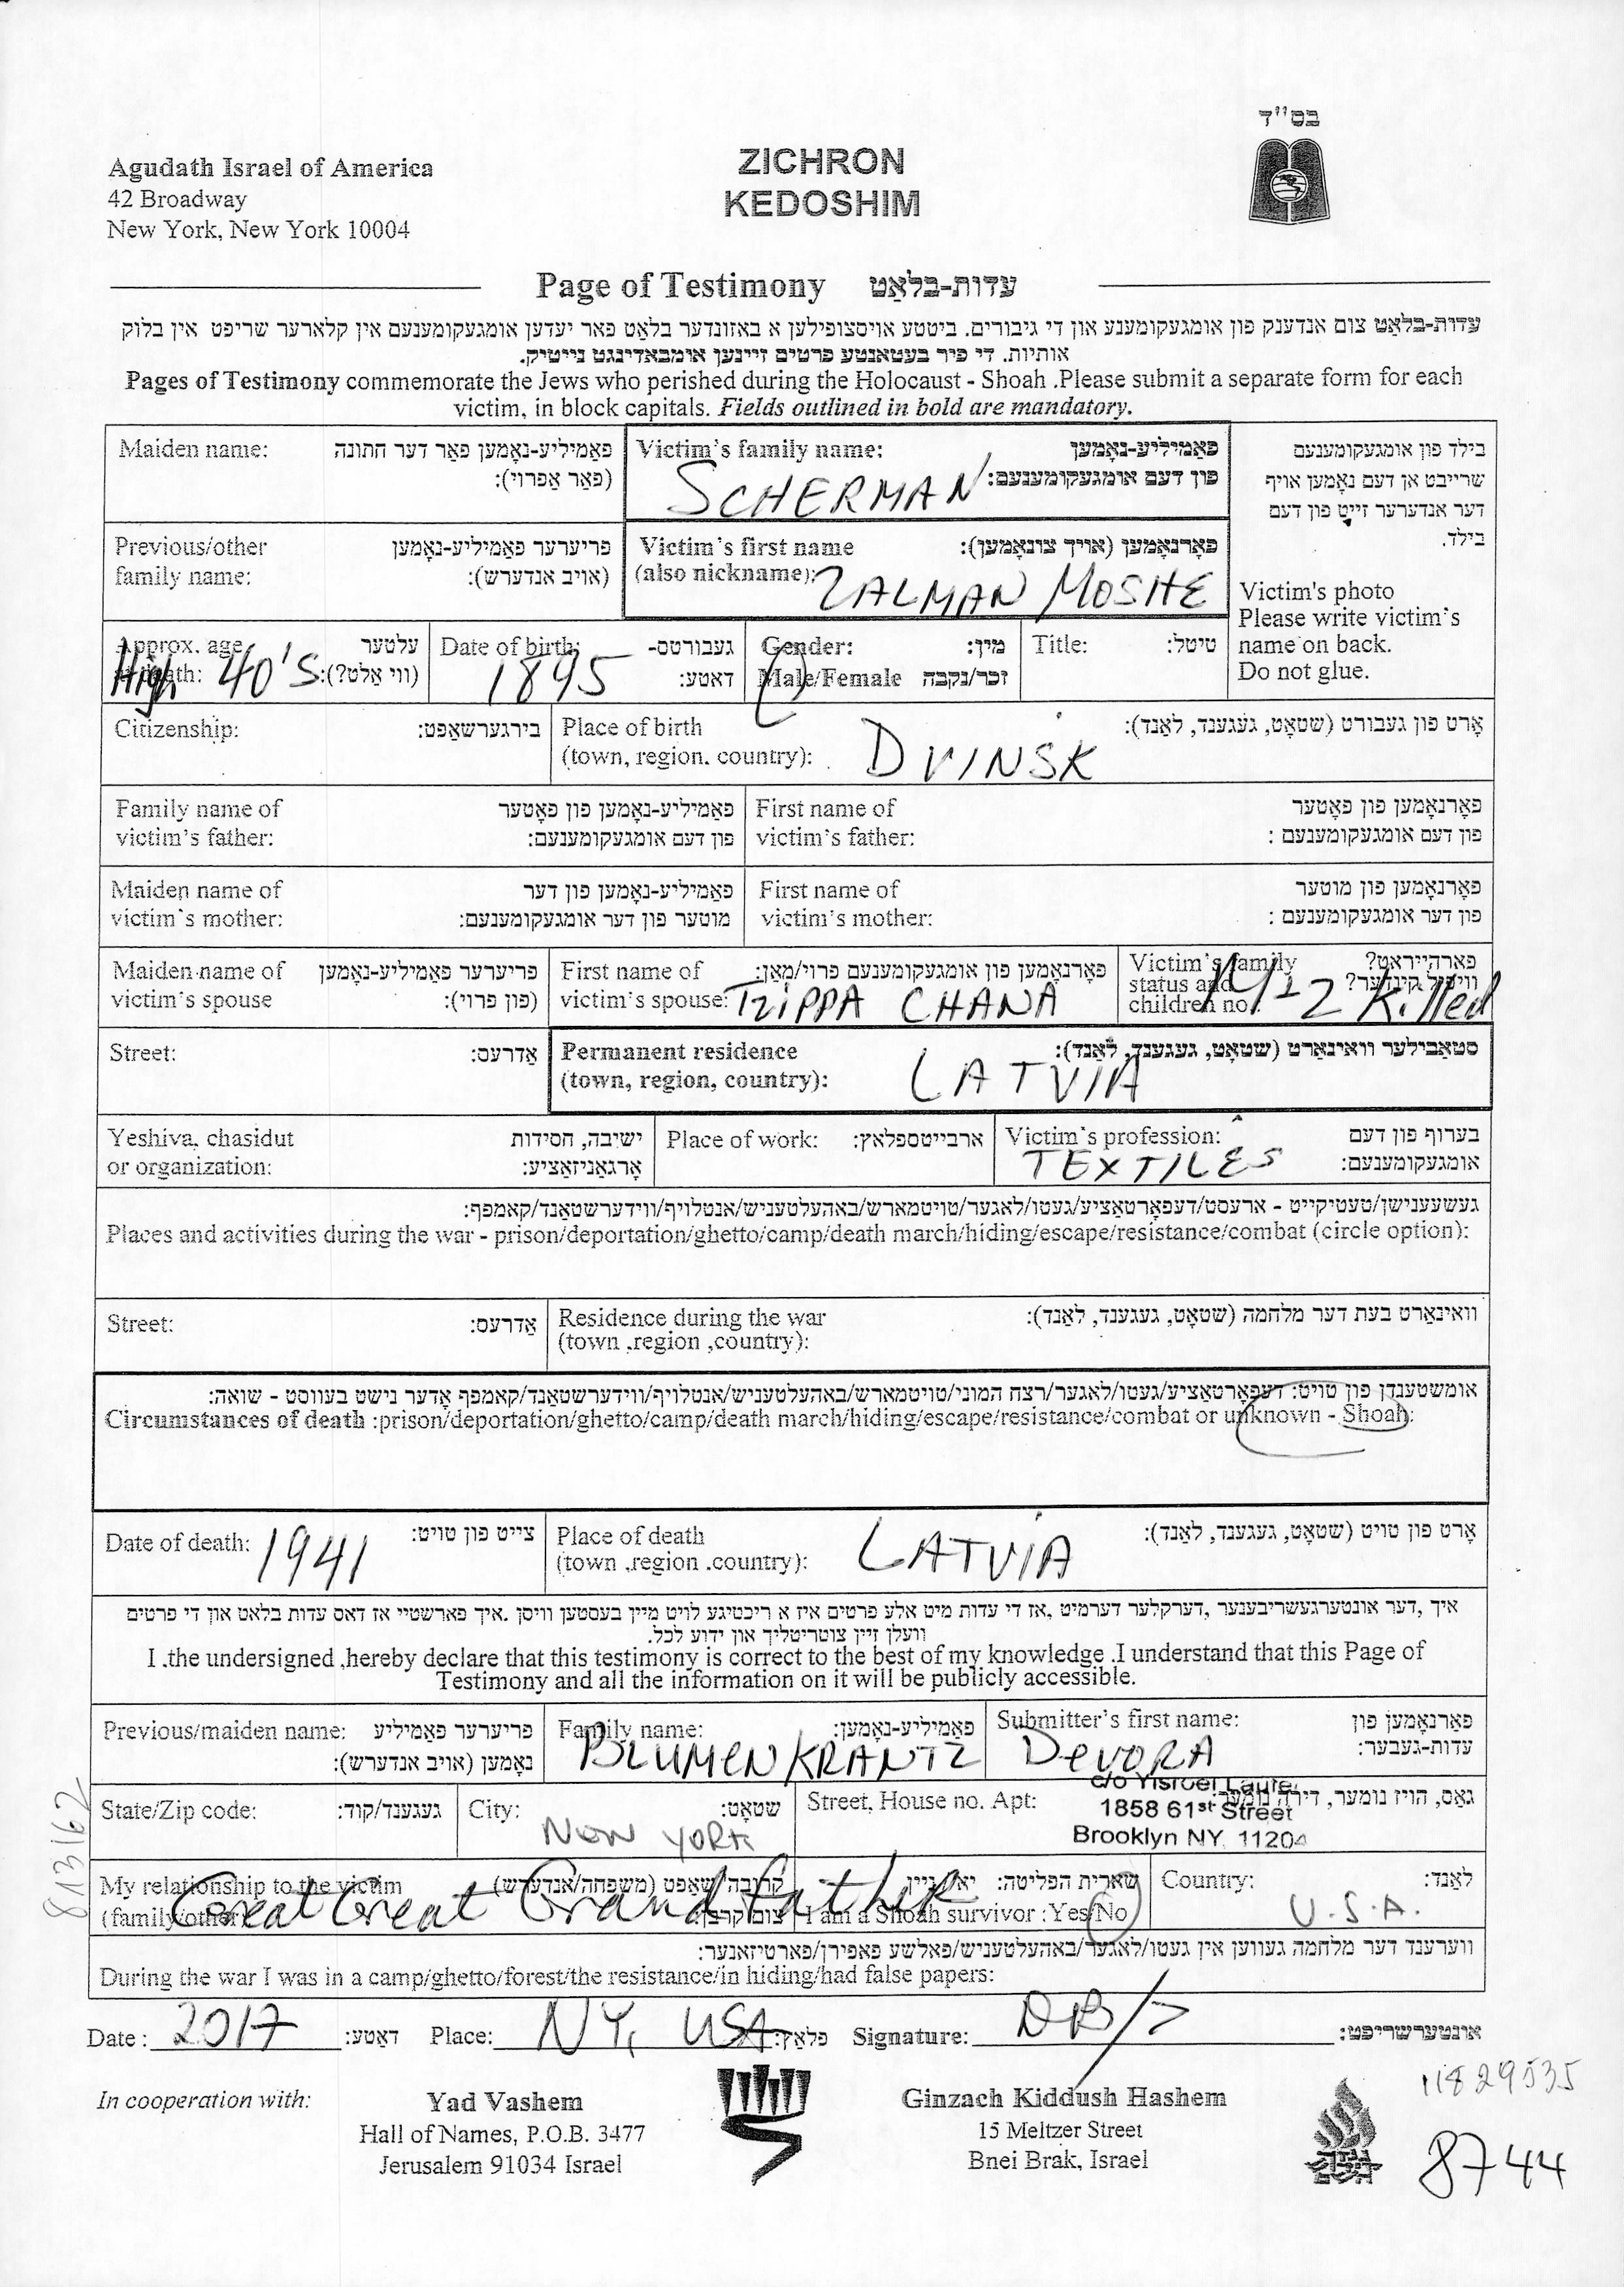 בס"ד
Agudath Israel of America
42 Broadway
New York, New York 10004
ZICHRON
KEDOSHIM
Page of Testimony עדות-בלאַט
עדות-בלאַט צום אנדענק פון אומגעקומענע און די גיבורים. ביטטע אויסצופילען א באזונדער בלאַט פאר יעדען אומגעקומענעם אין קלארער שריפט אין בלוק
אותיות. די פיר בעטאנטע פרטים זיינען אומבאדינגט נייטיק.
Pages of Testimony commemorate the Jews who perished during the Holocaust - Shoah .Please submit a separate form for each
victim, in block capitals. Fields outlined in bold are mandatory.
Maiden name: פאַמיליע-נאָמען פאר דער חתונה
(פאר אַפרוי):
Victim's family name: פאַמיליע-נאָמען
פון דעם אומגעקומענעם:
SCHERMAN
בילד פון אומגעקומענעם
שרייבט אן דעם נאָמען אויף
דער אנדערער זייט פון דעם
בילד.
Victim's photo
Please write victim's
name on back.
Do not glue.
Previous/other פריערער פאַמיליע-נאָמען
family name: (אויב אנדערש):
Victim's first name פאָרנאָמען (אויך צונאָמען):
(also nickname): ZALMAN MOSHE
Approx. age עלטער
(ווי אַלט?):
High 40'S
Date of birth: געבורטס-
דאַטע:
1895
Gender: מין:
Male/Female זכר/נקבה
Title: טיטל:
Citizenship: בירגערשאַפט:
Place of birth אָרט פון געבורט (שטאָט, געגענד, לאַנד):
(town, region. country): DVINSK
Family name of פאַמיליע-נאָמען פון פאָטער
victim's father: פון דעם אומגעקומענעם:
First name of פאָרנאָמען פון פאָטער
victim's father: פון דעם אומגעקומענעם :
Maiden name of פאַמיליע-נאָמען פון דער
victim's mother: מוטער פון דער אומגעקומענעם:
First name of פאָרנאָמען פון מוטער
victim's mother: פון דער אומגעקומענעם :
Maiden name of פריערער פאַמיליע-נאָמען
victim's spouse (פון פרוי):
First name of פאָרנאָמען פון אומגעקומענעם פרוי/מאַן:
victim's spouse: TZIPPA CHANA
Victim's family פארהייראט?
status and וויפיל קינדער?
children no.
2 Killed
Street: אַדרעס:
Permanent residence סטאַבילער וואוינאָרט (שטאָט, געגענד, לאַנד):
(town, region, country): LATVIA
Yeshiva, chasidut ישיבה, חסידות
or organization: אָרגאַניזאַציע:
Place of work: ארבייטספלאץ:
Victim's profession: בערוף פון דעם
אומגעקומענעם:
TEXTILES
געשעענישן/טעטיקייט - ארעסט/דעפאָרטאַציע/געטו/לאַגער/טויטמארש/באהעלטעניש/אנטלויף/ווידערשטאַנד/קאמפף:
Places and activities during the war - prison/deportation/ghetto/camp/death march/hiding/escape/resistance/combat (circle option):
Street: אַדרעס:
Residence during the war וואוינאָרט בעת דער מלחמה (שטאָט, געגענד, לאַנד):
(town ,region ,country):
אומשטענדן פון טויט: דעפאָרטאַציע/געטו/לאגער/רצח המוני/טויטמארש/באהעלטעניש/אנטלויף/ווידערשטאַנד/קאמפף אָדער נישט בעוווסט - שואה:
Circumstances of death :prison/deportation/ghetto/camp/death march/hiding/escape/resistance/combat or unknown - Shoah:
Date of death: 1941 צייט פון טויט:
Place of death אָרט פון טויט (שטאָט, געגענד, לאַנד):
(town ,region .country): LATVIA
איך ,דער אונטערגעשריבענער ,דערקלער דערמיט ,אז די עדות מיט אלע פרטים איז א ריכטיגע לויט מיין בעסטען וויסן .איך פארשטיי אז דאס עדות בלאט און די פרטים
וועלן זיין צוטריטליך און ידוע לכל.
I .the undersigned ,hereby declare that this testimony is correct to the best of my knowledge .I understand that this Page of
Testimony and all the information on it will be publicly accessible.
Previous/maiden name: פריערער פאַמיליע
נאָמען (אויב אנדערש):
Family name: פאַמיליע-נאָמען:
BLUMENKRANTZ
Submitter's first name: פאָרנאָמען פון
עדות-געבער:
DEVORA
State/Zip code: געגענד/קוד:
City: שטאָט:
NEW YORK
Street, House no. Apt: גאַס, הויז נומער, דירה נומער:
c/o Yisroel Laufer
1858 61st Street
Brooklyn NY 11204
My relationship to the victim קרובה'שאַפט (משפחה/אנדערש)
(family/other) צום קרבן:
Great Great Grandfather
שארית הפליטה: יא/ניין
I am a Shoah survivor :Yes/No
Country: לאַנד:
U.S.A.
ווערענד דער מלחמה געווען אין געטו/לאגער/באהעלטעניש/פאלשע פאפירן/פארטיזאנער:
During the war I was in a camp/ghetto/forest/the resistance/in hiding/had false papers:
Date : 2017 דאַטע: Place: NY, USA פלאַץ: Signature: DB אונטערשריפט:
In cooperation with:
Yad Vashem
Hall of Names, P.O.B. 3477
Jerusalem 91034 Israel
Ginzach Kiddush Hashem
15 Meltzer Street
Bnei Brak, Israel
11829535
8744
813162